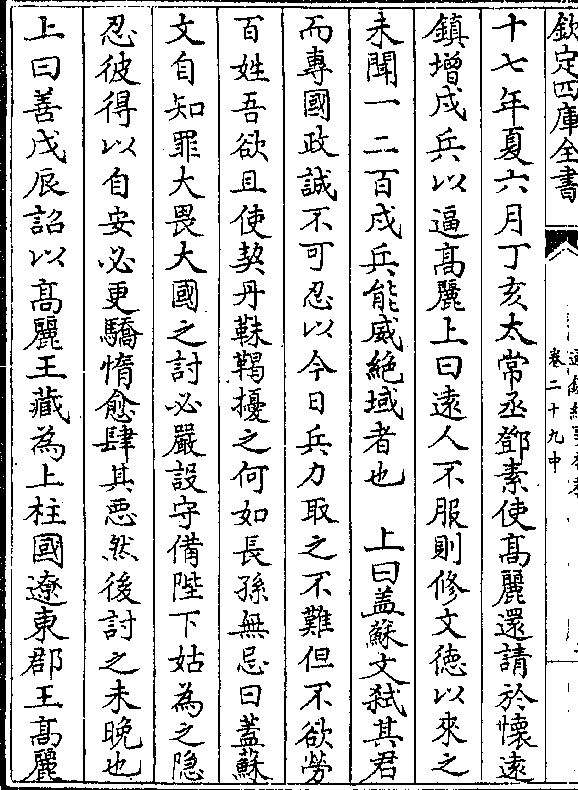 欽定四庫全書
卷二十九中
十七年夏六月丁亥太常丞鄧素使髙麗還請於懷遠
鎮增戍兵以逼髙麗上曰遠人不服則修文德以來之
未聞一二百戍兵能威絶域者也　上曰盖蘇文弑其君
而專國政誠不可忍以今日兵力取之不難但不欲勞
百姓吾欲且使契丹靺鞨擾之何如長孫無忌曰盖蘇
文自知罪大畏大國之討必嚴設守備陛下姑為之隐
忍彼得以自安必更驕惰愈肆其惡然後討之未晚也
上曰善戊辰詔以髙麗王藏為上柱國遼東郡王髙麗